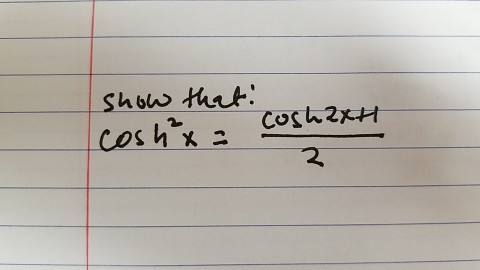 show that:
cosh²x = cosh2x+1
2